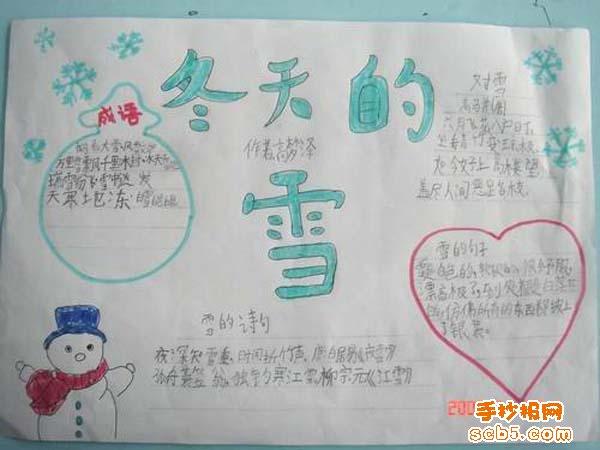 冬天的
雪
作者高梦泽
成语
万里雪飘千里冰封
瑞雪
天寒地冻
对雪
高骈
六月飞花入户时
坐看竹变琼枝
如今好上高楼望
盖尽人间恶路岐
雪的句子
雪白色的,软软的,很
漂亮极了,到处都是白茫茫
的,仿佛所有的东西都披上
了银装。
雪的诗句
夜深知雪重,时闻折竹声。唐白居易《夜雪》
孤舟蓑笠翁,独钓寒江雪,柳宗元《江雪》
200
手抄报网
scb5.com